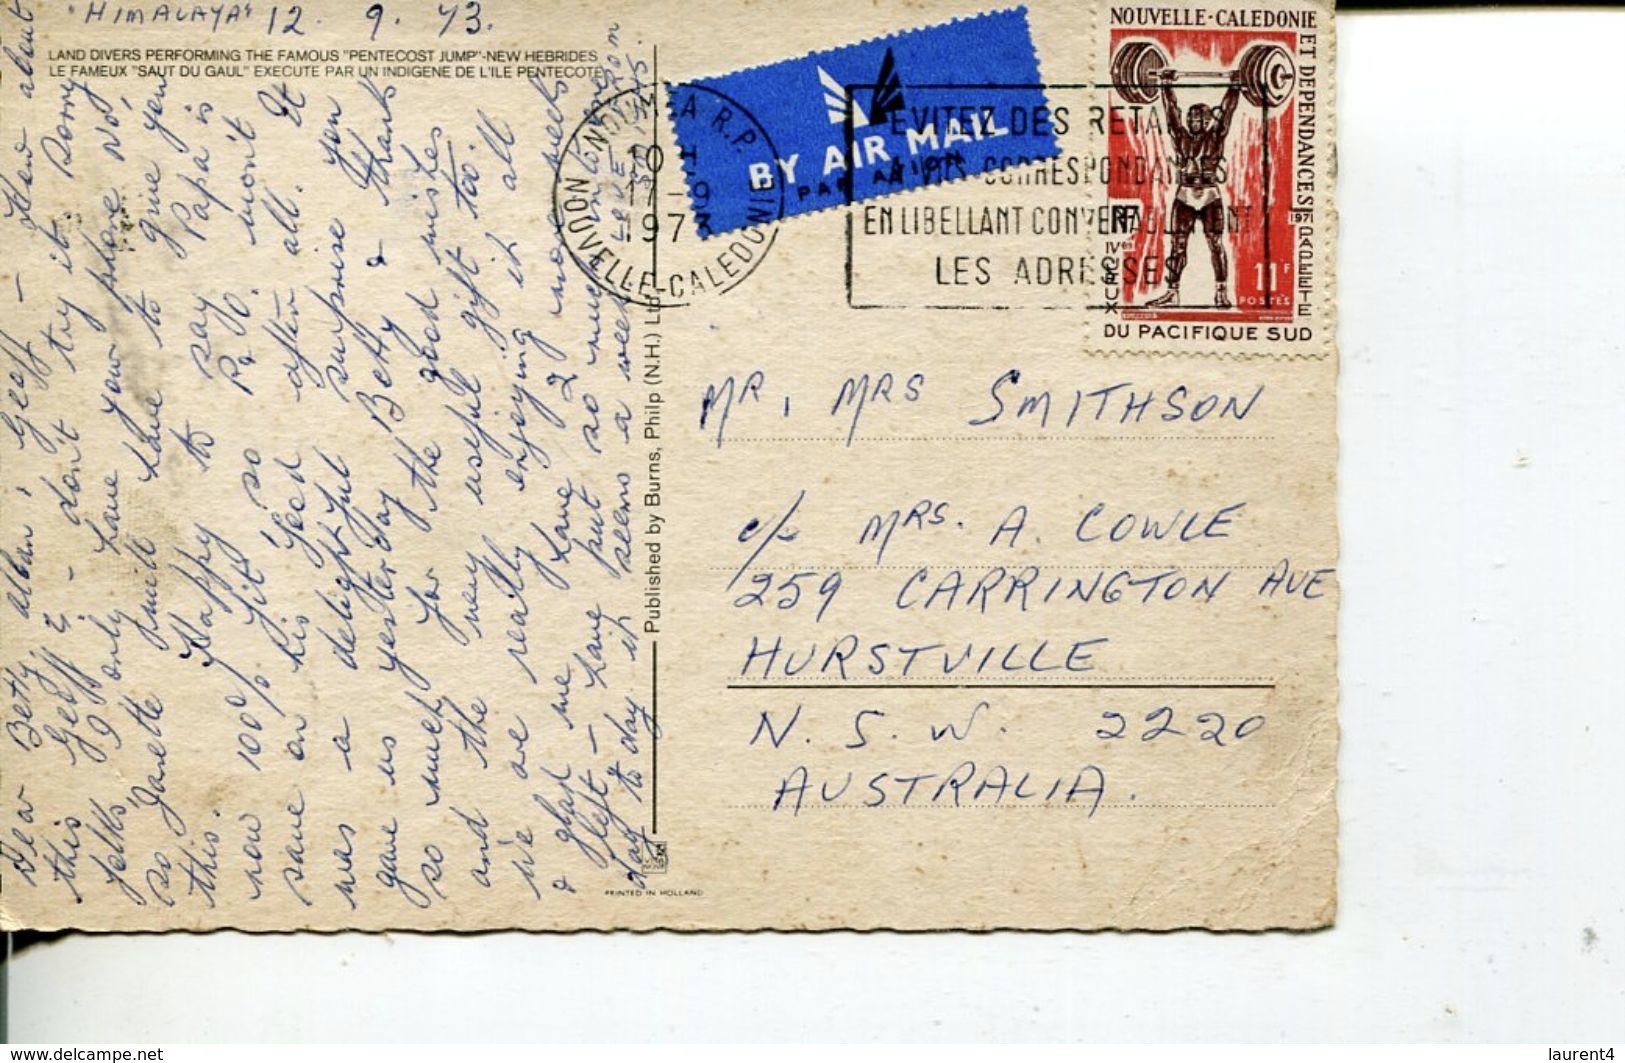 "HIMALAYA" 12. 9. 73.
LAND DIVERS PERFORMING THE FAMOUS "PENTECOST JUMP"-NEW HEBRIDES
LE FAMEUX "SAUT DU GAUL" EXECUTE PAR UN INDIGENE DE L'ILE PENTECOTE
Dear Betty, Alban, Geoff - How about
this Geoff? - don't try it. Sorry
folks, I only have your phone No,
so Janette will have to give you
this. Happy to say Papa is
now 100% fit so P&O. won't
have on his after all. It
was a delightful surprise you
gave us yesterday Betty & thanks
so much for the good wishes
and the very useful gift too.
We are really enjoying it all
& glad we have 2 more weeks
left - have put so much into each
day to day it seems a week
LOVE FROM
Published by Burns, Philp (N.H.) Ltd.
PRINTED IN HOLLAND
NOUMEA R.P.
10 H
17-9
1973
NOUVELLE-CALEDONIE
BY AIR MAIL
PAR AVION
EVITEZ DES RETARDS
A VOS CORRESPONDANCES
EN LIBELLANT CONVENABLEMENT
LES ADRESSES
NOUVELLE-CALEDONIE
ET DEPENDANCES
RF
IVes JEUX
1971 PAPEETE
11F
POSTES
DU PACIFIQUE SUD
MR, MRS SMITHSON
c/- MRS. A. COWLE
259 CARRINGTON AVE
HURSTVILLE
N. S. W. 2220
AUSTRALIA.
laurent4
www.delcampe.net